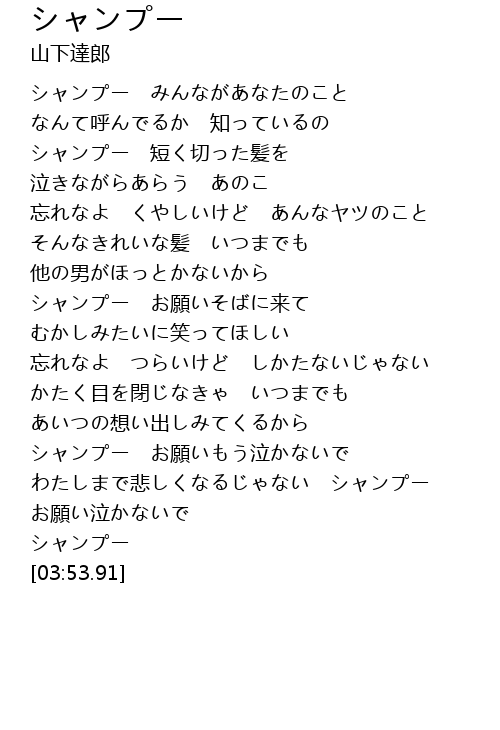 シャンプー
山下達郎
シャンプー　みんながあなたのこと
なんて呼んでるか　知っているの
シャンプー　短く切った髪を
泣きながらあらう　あのこ
忘れなよ　くやしいけど　あんなヤツのこと
そんなきれいな髪　いつまでも
他の男がほっとかないから
シャンプー　お願いそばに来て
むかしみたいに笑ってほしい
忘れなよ　つらいけど　しかたないじゃない
かたく目を閉じなきゃ　いつまでも
あいつの想い出しみてくるから
シャンプー　お願いもう泣かないで
わたしまで悲しくなるじゃない　シャンプー
お願い泣かないで
シャンプー
[03:53.91]